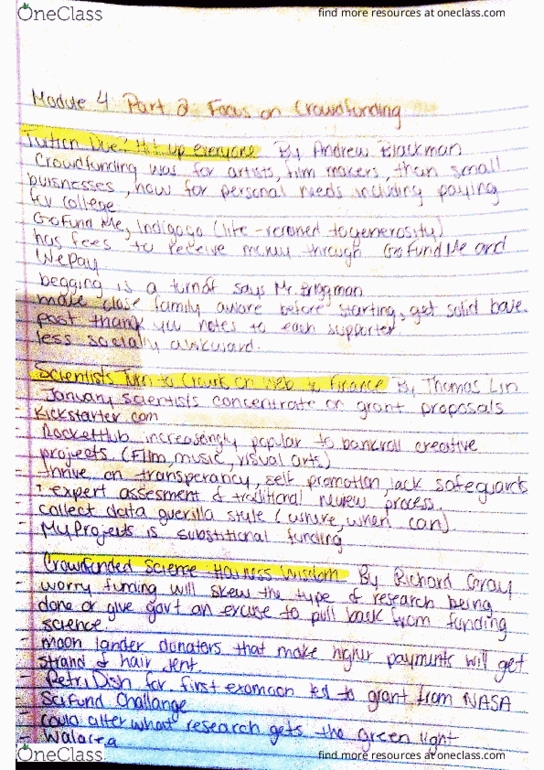 OneClass
find more resources at oneclass.com
Module 4 Part 2 Focus on Crowdfunding
Tuition Due? Hit up everyone By Andrew Blackman
Crowdfunding was for artists, film makers, than small
buisnesses, now for personal needs including paying
for college
GoFund Me, Indigogo (life - renamed to generosity)
has fees to receive money through GoFundMe and
WePay
begging is a turnoff says Mr.
make close family aware before starting, get solid base.
post thank you notes to each supporter
less socially awkward.
Scientists Turn to Crowds on Web to Finance By Thomas Lin
January scientists concentrate on grant proposals
- Kickstarter.com
- RocketHub increasingly popular to bankroll creative
projects (Film, music, visual arts)
- thrive on transperancy, self promotion, lack safeguards
expert assesment & traditional review process
- collect data guerilla style (where, when can)
- MyProjects is substitional funding
Crowdfunded Science Harness Wisdom By Richard Gray
- worry funding will skew the type of research being
done or give govt an excuse to pull back from funding
science
- moon lander donaters that make higher payments will get
strand of hair sent.
- Petri Dish for first exomoon led to grant from NASA
- SciFund Challange
- could alter what research gets the green light
- Walacea
OneClass
find more resources at oneclass.com